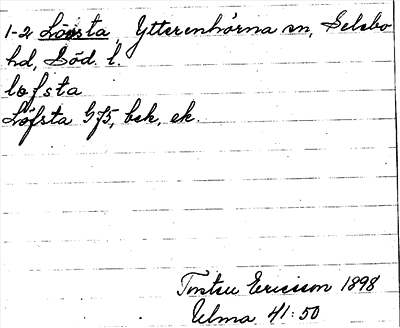 1-2 Lövsta, Ytterenhörna sn, Selebo
hd, Söd. l.
løfsta
Löfsta 975, bsk, ek.
Torsten Ericsson 1898
Ulma 41:50